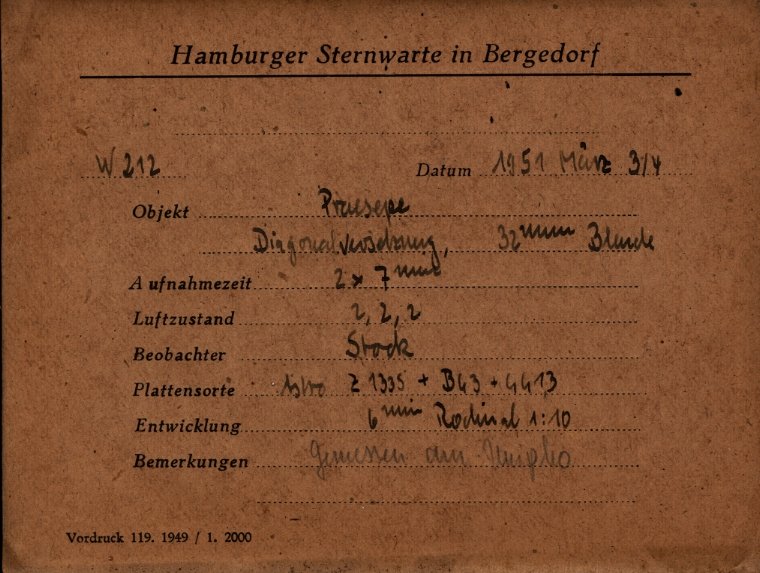 Hamburger Sternwarte in Bergedorf
W 212 Datum 1951 März 3/4
Objekt Praesepe
Diagonalversetzung, 32mm Blende
Aufnahmezeit 2 x 7 min
Luftzustand 2, 2, 2
Beobachter Stock
Plattensorte Astro Z 1335 + B43 + 4413
Entwicklung 6 min Rodinal 1:10
Bemerkungen Gemessen am
Vordruck 119. 1949 / 1. 2000